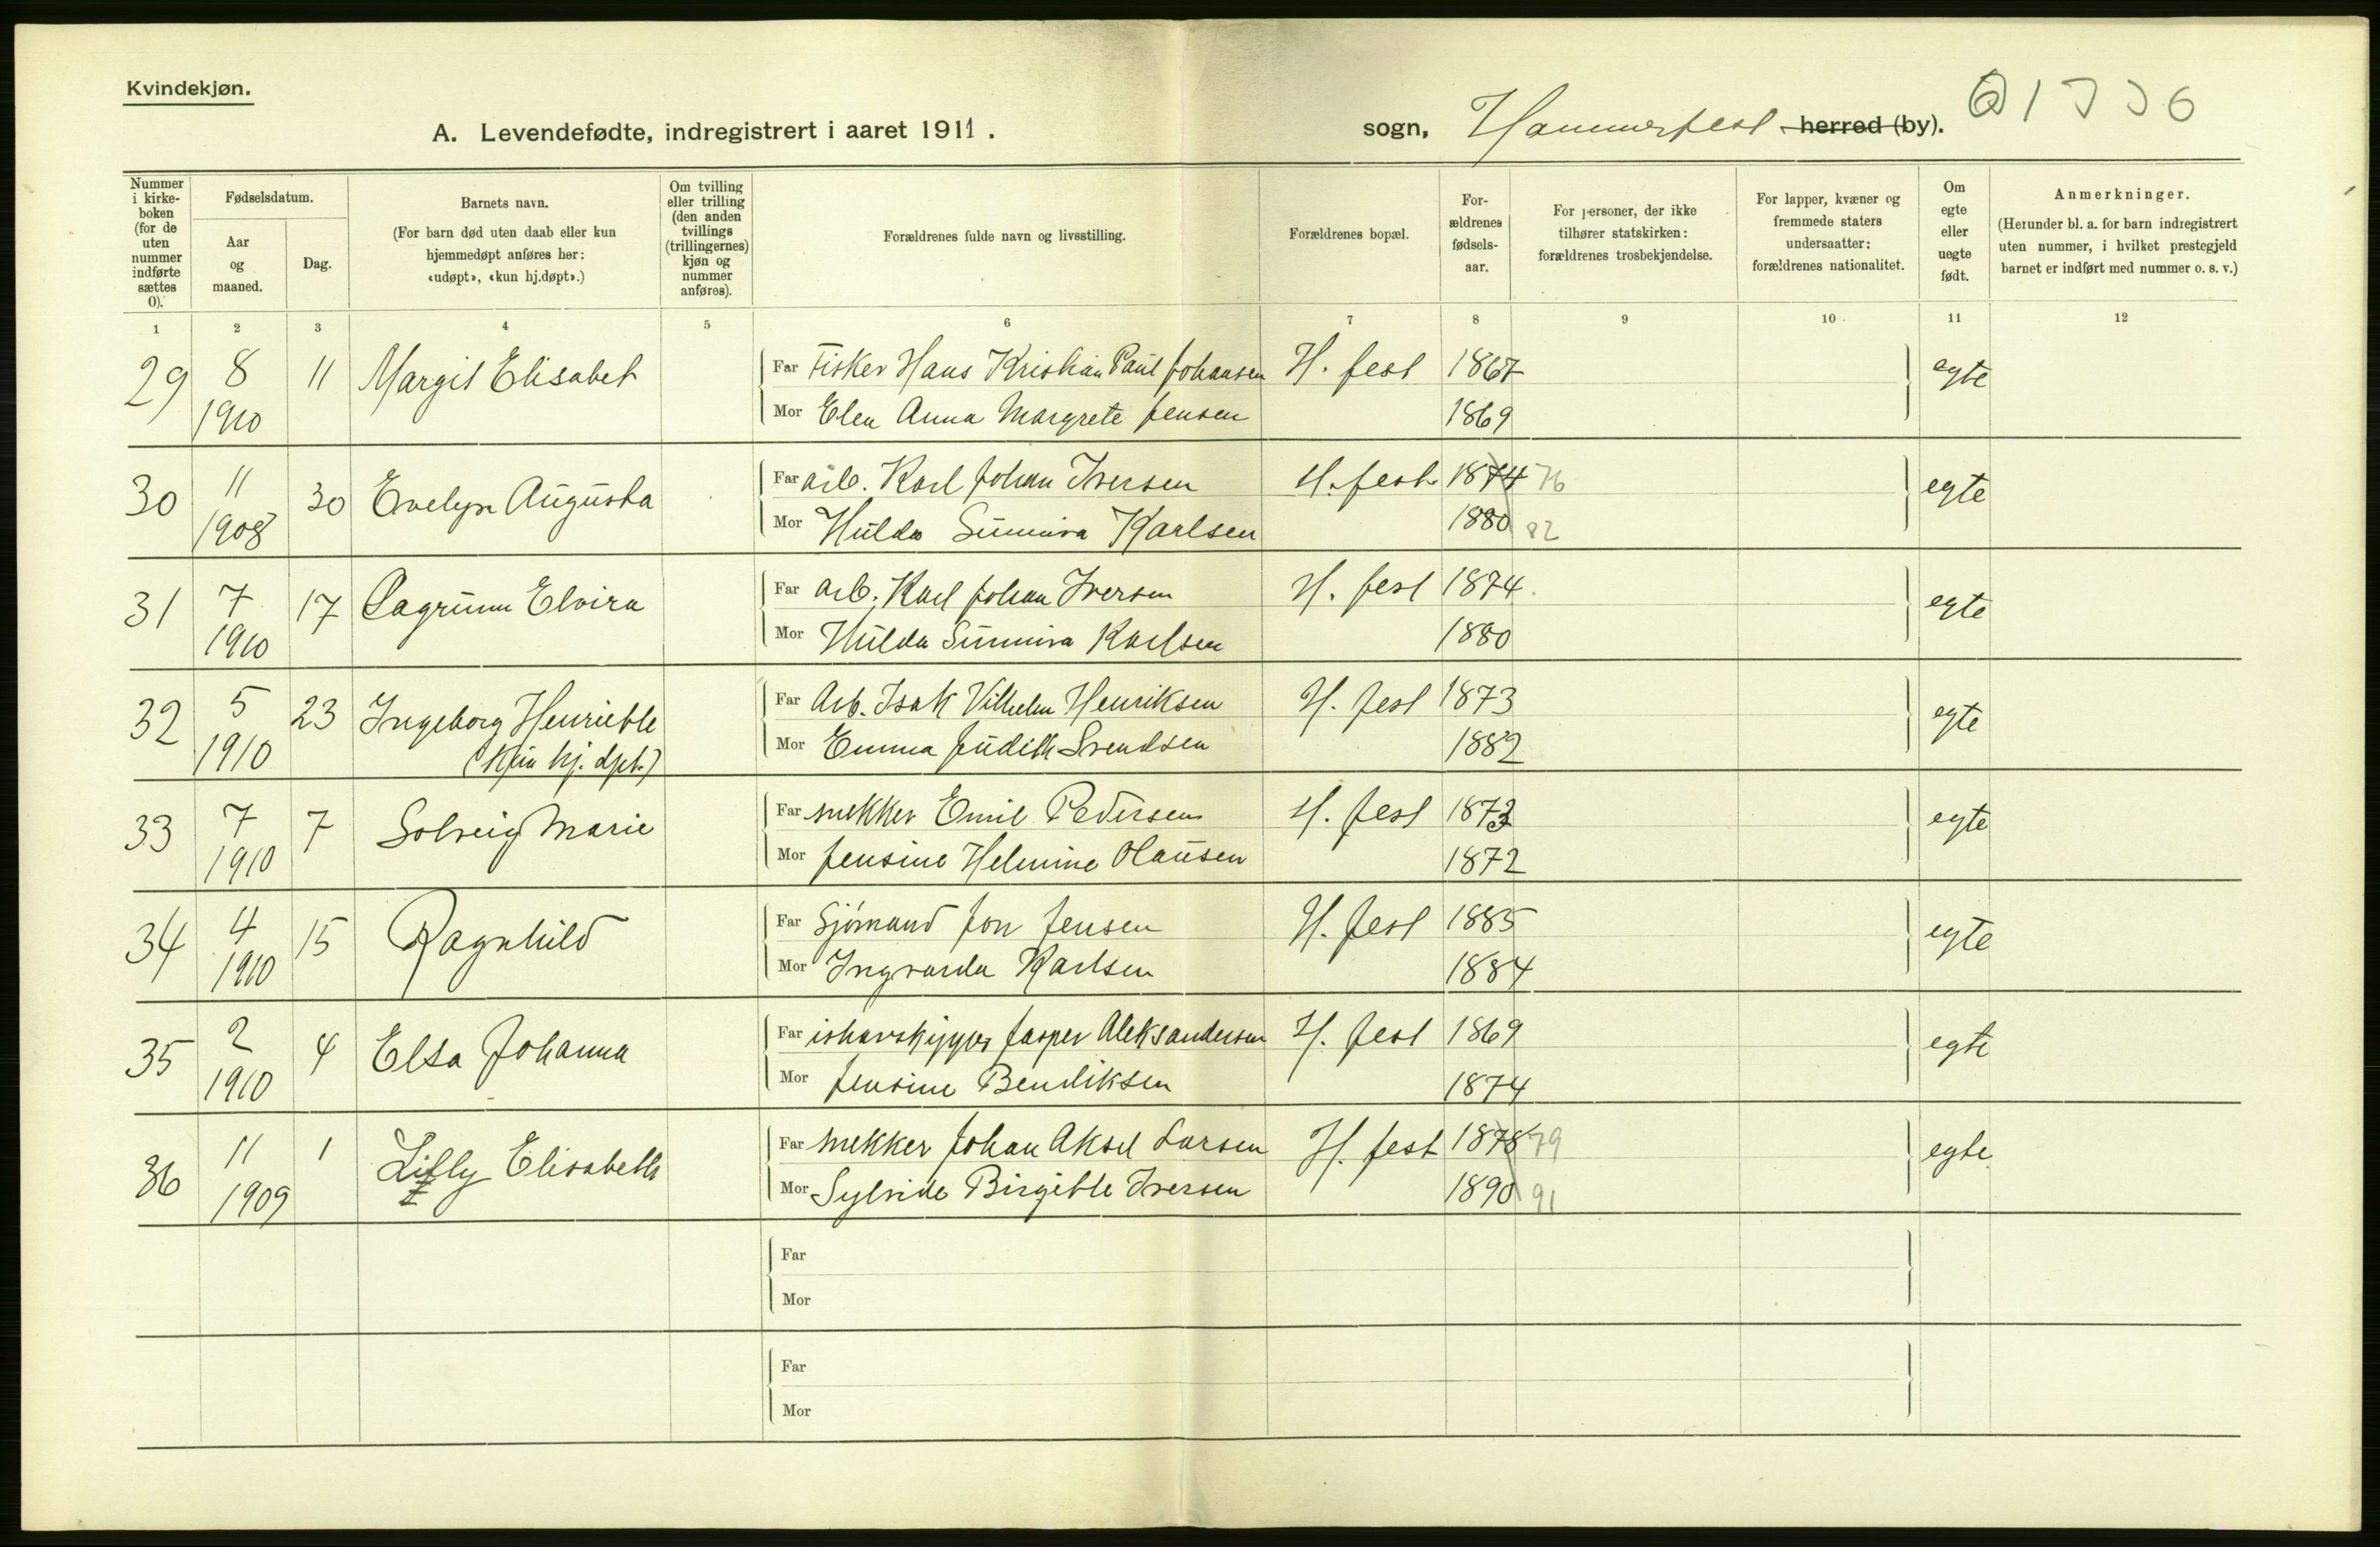 Kvindekjøn.
A. Levendefødte, indregistrert i aaret 1911.
sogn, Hammerfest herred (by).
Nummer i kirkeboken (for de uten nummer indførte sættes 0).
Fødselsdatum.
Aar og maaned.
Dag.
Barnets navn.
(For barn død uten daab eller kun hjemmedøpt anføres her: «udøpt», «kun hj.døpt».)
Om tvilling eller trilling (den anden tvillings (trillingernes) kjøn og nummer anføres).
Forældrenes fulde navn og livsstilling.
Forældrenes bopæl.
Forældrenes fødselsaar.
For personer, der ikke tilhører statskirken: forældrenes trosbekjendelse.
For lapper, kvæner og fremmede staters undersaatter: forældrenes nationalitet.
Om egte eller uegte født.
Anmerkninger.
(Herunder bl. a. for barn indregistrert uten nummer, i hvilket prestegjeld barnet er indført med nummer o. s. v.)
1 2 3 4 5 6 7 8 9 10 11 12
29 8 1910 11 Margit Elisabet Far Fisker Hans Kristian Paul Johansen H. fest 1867 egte
Mor Elen Anna Margrete Jensen 1869
30 11 1908 30 Evelyn Augusta Far arb. Karl Johan Iversen H. fest 1874 76 egte
Mor Hulda Sunniva Karlsen 1880 82
31 7 1910 17 Dagrunn Elvira Far arb. Karl Johan Iversen H. fest 1874 egte
Mor Hulda Sunniva Karlsen 1880
32 5 1910 23 Ingeborg Henriette Far Arb. Isak Vilhelm Henriksen H. fest 1873 egte
(Kun hj. dpt.) Mor Emma Judith Svendsen 1882
33 7 1910 7 Solveig Marie Far snekker Emil Pedersen H. fest 1873 egte
Mor Jensine Helmine Olausen 1872
34 4 1910 15 Ragnhild Far Sjömand Jon Jensen H. fest 1885 egte
Mor Ingvarda Karlsen 1884
35 2 1910 4 Elsa Johanna Far ishavskipper Jasper Aleksandersen H. fest 1869 egte
Mor Jensine Bendiksen 1874
36 11 1909 1 Lilly Elisabeth Far snekker Johan Aksel Larsen H. fest 1878 79 egte
Mor Sylvide Birgitte Iversen 1890 91
Far
Mor
Far
Mor